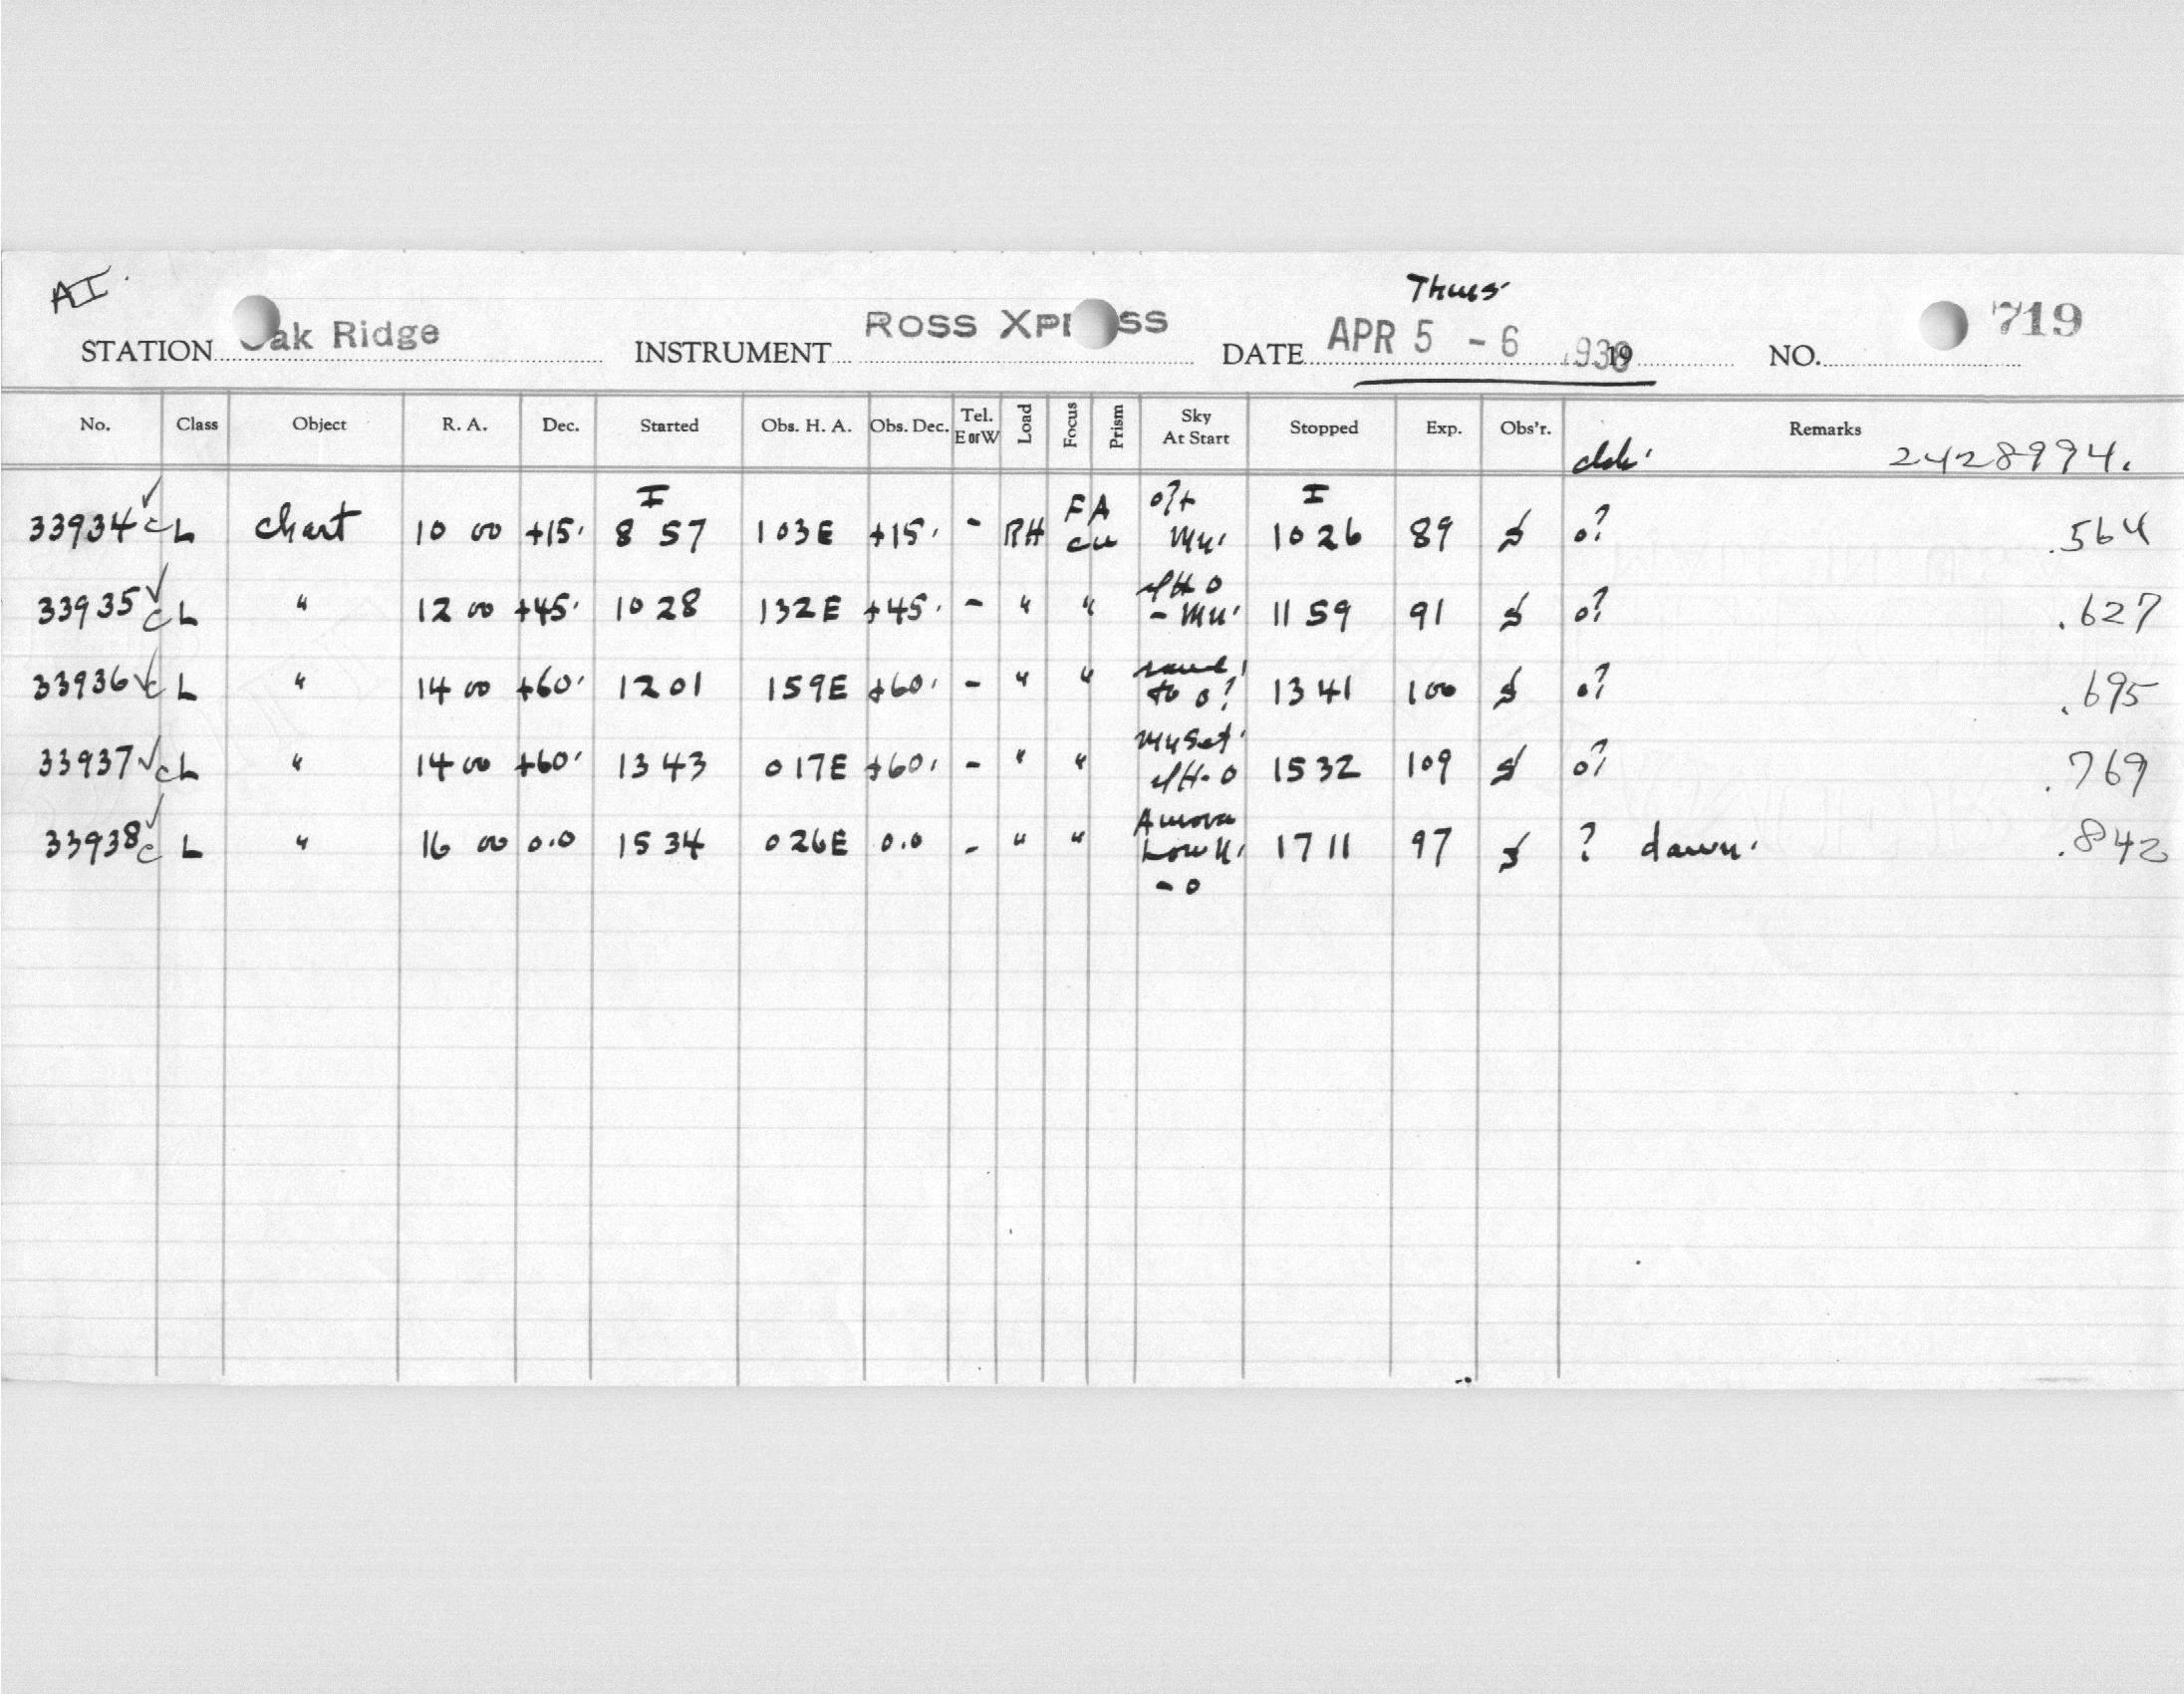 AI.
Thurs.
STATION Oak Ridge INSTRUMENT ROSS XPRESS DATE APR 5 - 6 1938 19 NO. 719
No. Class Object R. A. Dec. Started Obs. H. A. Obs. Dec. Tel. E or W Load Focus Prism Sky At Start Stopped Exp. Obs'r. Remarks
2428994.
I I
33934 c L Chart 10 00 +15. 8 57 103E +15. - RH FA 10 26 89 o? .564
33935 c L " 12 00 +45. 10 28 132E +45. - " " 11 59 91 o? .627
33936 c L " 14 00 +60. 12 01 159E +60. - " " to o? 13 41 100 o? .695
33937 c L " 14 00 +60. 13 43 017E +60. - " " 15 32 109 o? .769
33938 c L " 16 00 0.0 15 34 026E 0.0 - " " Aurora Low N. - o 17 11 97 ? dawn. .842